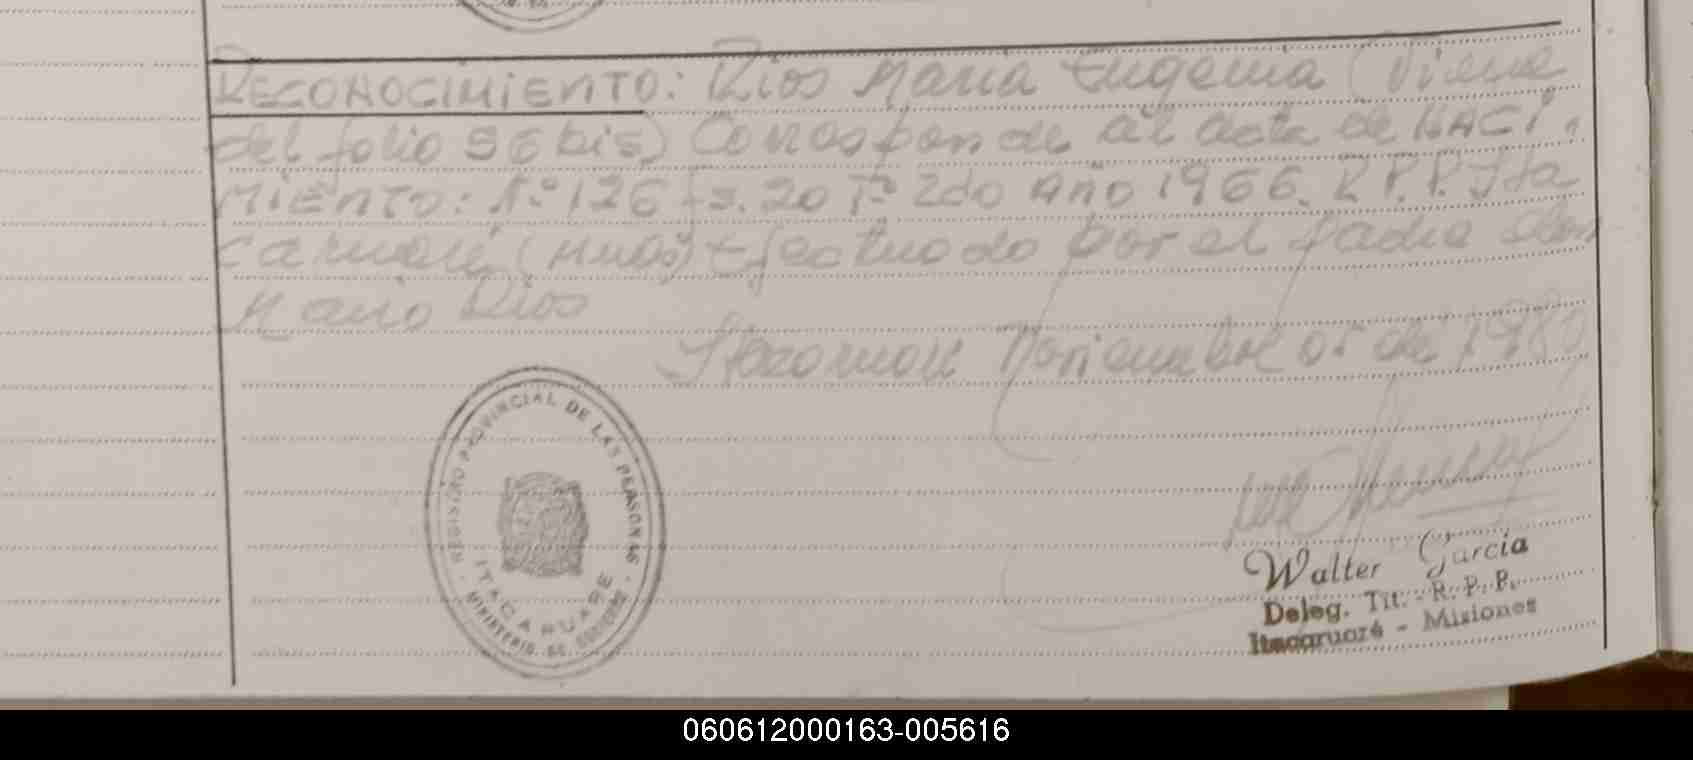 RECONOCIMIENTO: Rios Maria Eugenia (Viene
del folio 56 bis) Corresponde al acta de NACI-
MIENTO: Nº 126 fs. 20 Tº 2do Año 1966. R.P.P. Ita
caruaré (Mnes) Efectuado por el padre don
Mario Rios
Itacaruaré Noviembre 05 de 1980
REGISTRO PROVINCIAL DE LAS PERSONAS
ITACARUARE
MINISTERIO DE GOBIERNO
Walter Garcia
Deleg. Tit. - R. P. P.
Itacaruaré - Misiones
060612000163-005616